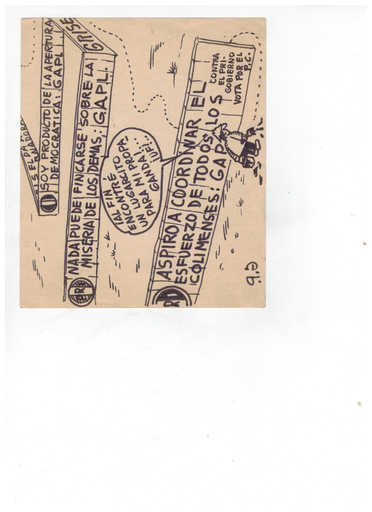 SOY PRODUCTO DE LA APERTURA
DEMOCRATICA: GAPL
GRISE
NADA PUEDE FINCARSE SOBRE LA
MISERIA DE LOS DEMAS: GAPL.
PRI
¡AL FIN
ENCONTRÉ
UN LUGARCITO
PARA MI PROPA-
GANDA
UFF!..
ASPIRO A COORDINAR EL
ESFUERZO DE TODOS LOS
COLIMENSES: GAP
CONTRA
EL PRI-
GOBIERNO
VOTA POR EL
P.C.